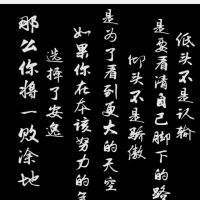 低头不是认输
是要看清自己脚下的路
仰头不是骄傲
是为了看到更大的天空
如果你在本该努力的
选择了安逸
那么你将一败涂地